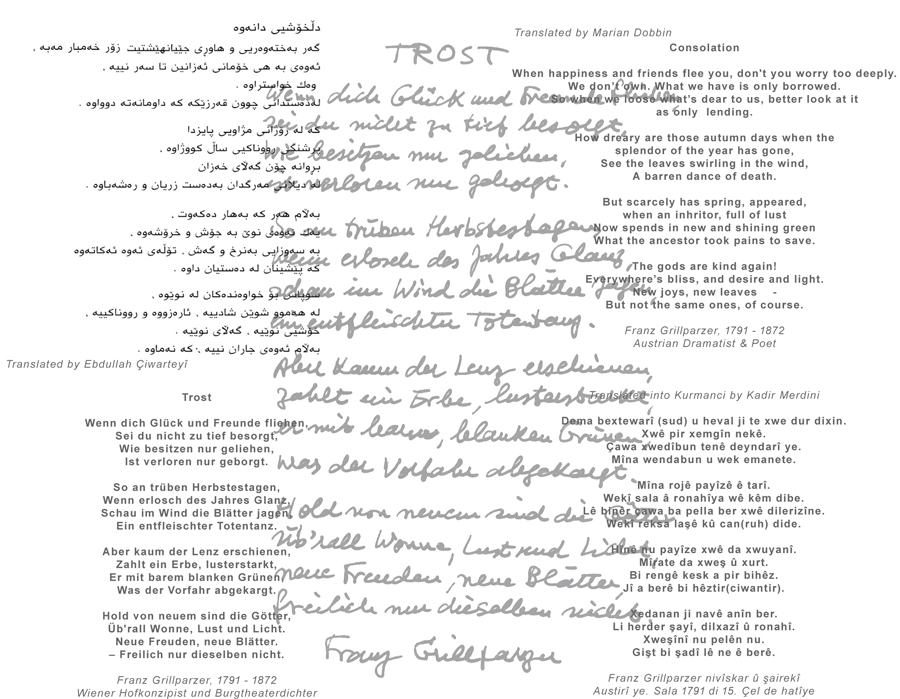 دڵخۆشیی دانەوە
گەر بەختەوەریی و هاوڕی جێیانهێشتیت زۆر خەمبار مەبە ,
ئەوەی بە هی خۆمانی ئەزانین تا سەر نییە ,
وەك خواستراوە .
لەدەستدانی چوون قەرزێکە کە داومانەتە دوواوە .
کە لە رۆژانی مژاویی پایزدا
پرشنگی رووناکیی ساڵ کووژاوە ,
بڕوانە چۆن گەلای خەزان
لە دیلانی مەرگدان بەدەست زریان و رەشەباوە .
بەلام هەر کە بەهار دەکەوت ,
یەك نەوەی نوێ بە جۆش و خرۆشەوە .
بە سەوزایی بەنرخ و گەش , تۆڵەی ئەوە ئەکاتەوە
کە پێشینان لە دەستیان داوە .
بۆ خواوەندەکان لە نوێوە ,
لە هەموو شوێن شادییە , ئارەزووە و رووناکییە ,
خۆشیی نوێیە , گەلای نوێیە .
بەلام ئەوەی جاران نییە , کە نەماوە .
Translated by Ebdullah Çiwarteyî
Trost
Wenn dich Glück und Freunde fliehen,
Sei du nicht zu tief besorgt,
Wie besitzen nur geliehen,
Ist verloren nur geborgt.
So an trüben Herbstestagen,
Wenn erlosch des Jahres Glanz,
Schau im Wind die Blätter jagen,
Ein entfleischter Totentanz.
Aber kaum der Lenz erschienen,
Zahlt ein Erbe, lusterstarkt,
Er mit barem blanken Grünen
Was der Vorfahr abgekargt.
Hold von neuem sind die Götter,
Üb'rall Wonne, Lust und Licht.
Neue Freuden, neue Blätter.
– Freilich nur dieselben nicht.
Franz Grillparzer, 1791 - 1872
Wiener Hofkonzipist und Burgtheaterdichter
TROST
Wenn dich Glück und Freunde fliehen,
Sei du nicht zu tief besorgt,
Wie besitzen nur geliehen,
So verloren nur geborgt.
So an trüben Herbstestagen,
Wenn erlosch des Jahres Glanz,
Schau im Wind die Blätter jagen,
Ein entfleischter Totentanz.
Aber kaum der Lenz erschienen,
Zahlt ein Erbe, lusterstarkt,
Er mit barem, blanken Grünen
Was der Vorfahr abgekargt.
Hold von neuem sind die Götter
Üb'rall Wonne, Lust und Licht
neue Freuden, neue Blätter,
freilich nur dieselben nicht.
Franz Grillparzer
Translated by Marian Dobbin
Consolation
When happiness and friends flee you, don't you worry too deeply.
We don't own. What we have is only borrowed.
So when we loose what's dear to us, better look at it
as only lending.
How dreary are those autumn days when the
splendor of the year has gone,
See the leaves swirling in the wind,
A barren dance of death.
But scarcely has spring, appeared,
when an inhritor, full of lust
Now spends in new and shining green
What the ancestor took pains to save.
The gods are kind again!
Everywhere's bliss, and desire and light.
New joys, new leaves -
But not the same ones, of course.
Franz Grillparzer, 1791 - 1872
Austrian Dramatist & Poet
Translated into Kurmanci by Kadir Merdini
Dema bextewarî (sud) u heval ji te xwe dur dixin.
Xwê pir xemgîn nekê.
Çawa xwedîbun tenê deyndarî ye.
Mîna wendabun u wek emanete.
Mîna rojê payîzê ê tarî.
Wekî sala â ronahîya wê kêm dibe.
Lê binêr çawa ba pella ber xwê dilerizîne.
Wekî reksa laşê kû can(ruh) dide.
Hînê nu payîze xwê da xwuyanî.
Mîrate da xweş û xurt.
Bi rengê kesk a pir bihêz.
Jî a berê bi hêztir(ciwantir).
Xedanan ji navê anîn ber.
Li herder şayî, dilxazî û ronahî.
Xweşînî nu pelên nu.
Gişt bi şadî lê ne ê berê.
Franz Grillparzer nivîskar û şairekî
Austirî ye. Sala 1791 di 15. Çel de hatîye